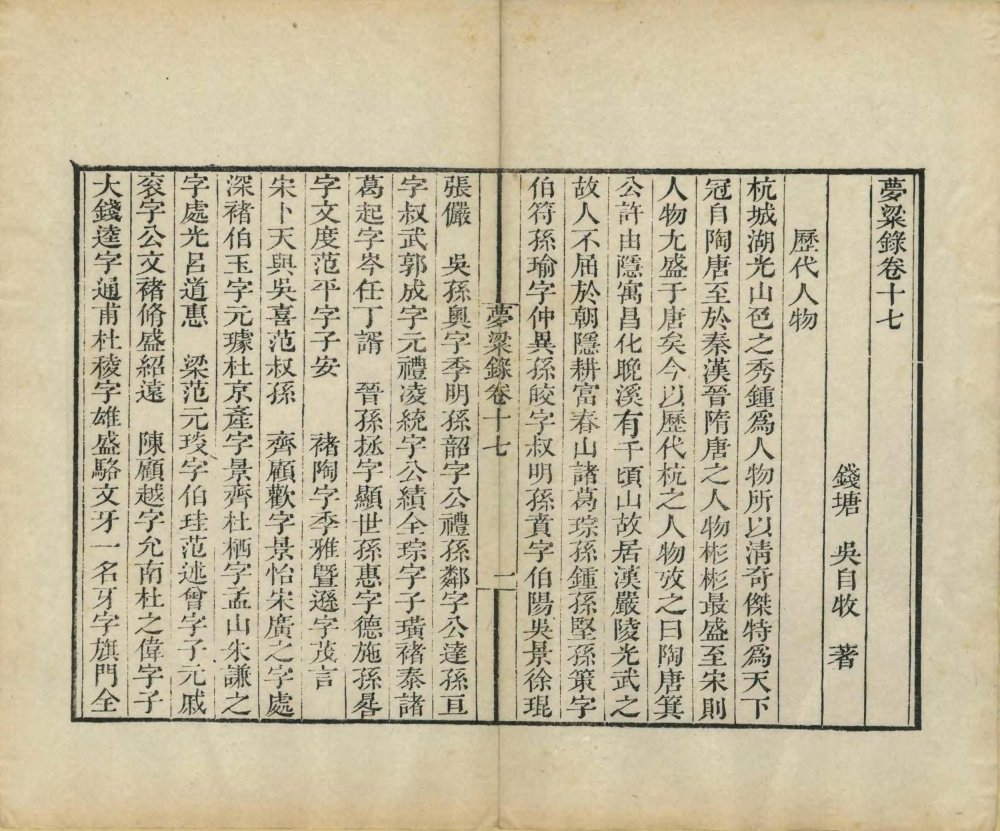 夢粱錄卷十七
錢塘 吳自牧 著
歷代人物
杭城湖光山色之秀鍾爲人物所以清奇傑特爲天下
冠自陶唐至於秦漢晉隋唐之人物彬彬最盛至宋則
人物尢盛于唐矣今以歷代杭之人物攷之曰陶唐箕
公許由隱寓昌化晚溪有千頃山故居漢嚴陵光武之
故人不屈於朝隱耕富春山諸葛琮孫鍾孫堅孫策字
伯符孫瑜字仲異孫皎字叔明孫賁字伯陽吳景徐琨
夢粱錄卷十七 一
張儼 吳孫奐字季明孫韶字公禮孫鄰字公達孫亘
字叔武郭成字元禮凌統字公績全琮字子璜褚泰諸
葛起字岑任丁諝 晉孫拯字顯世孫惠字德施孫晷
字文度范平字子安 褚陶字季雅暨遜字茂言
宋卜天與吳喜范叔孫 齊顧歡字景怡宋廣之字處
深褚伯玉字元璩杜京產字景齊杜栖字孟山朱謙之
字處光呂道惠 梁范元琰字伯珪范述曾字子元戚
衮字公文褚脩盛紹遠 陳顧越字允南杜之偉字子
大錢逵字通甫杜稜字雄盛駱文牙一名牙字旗門全